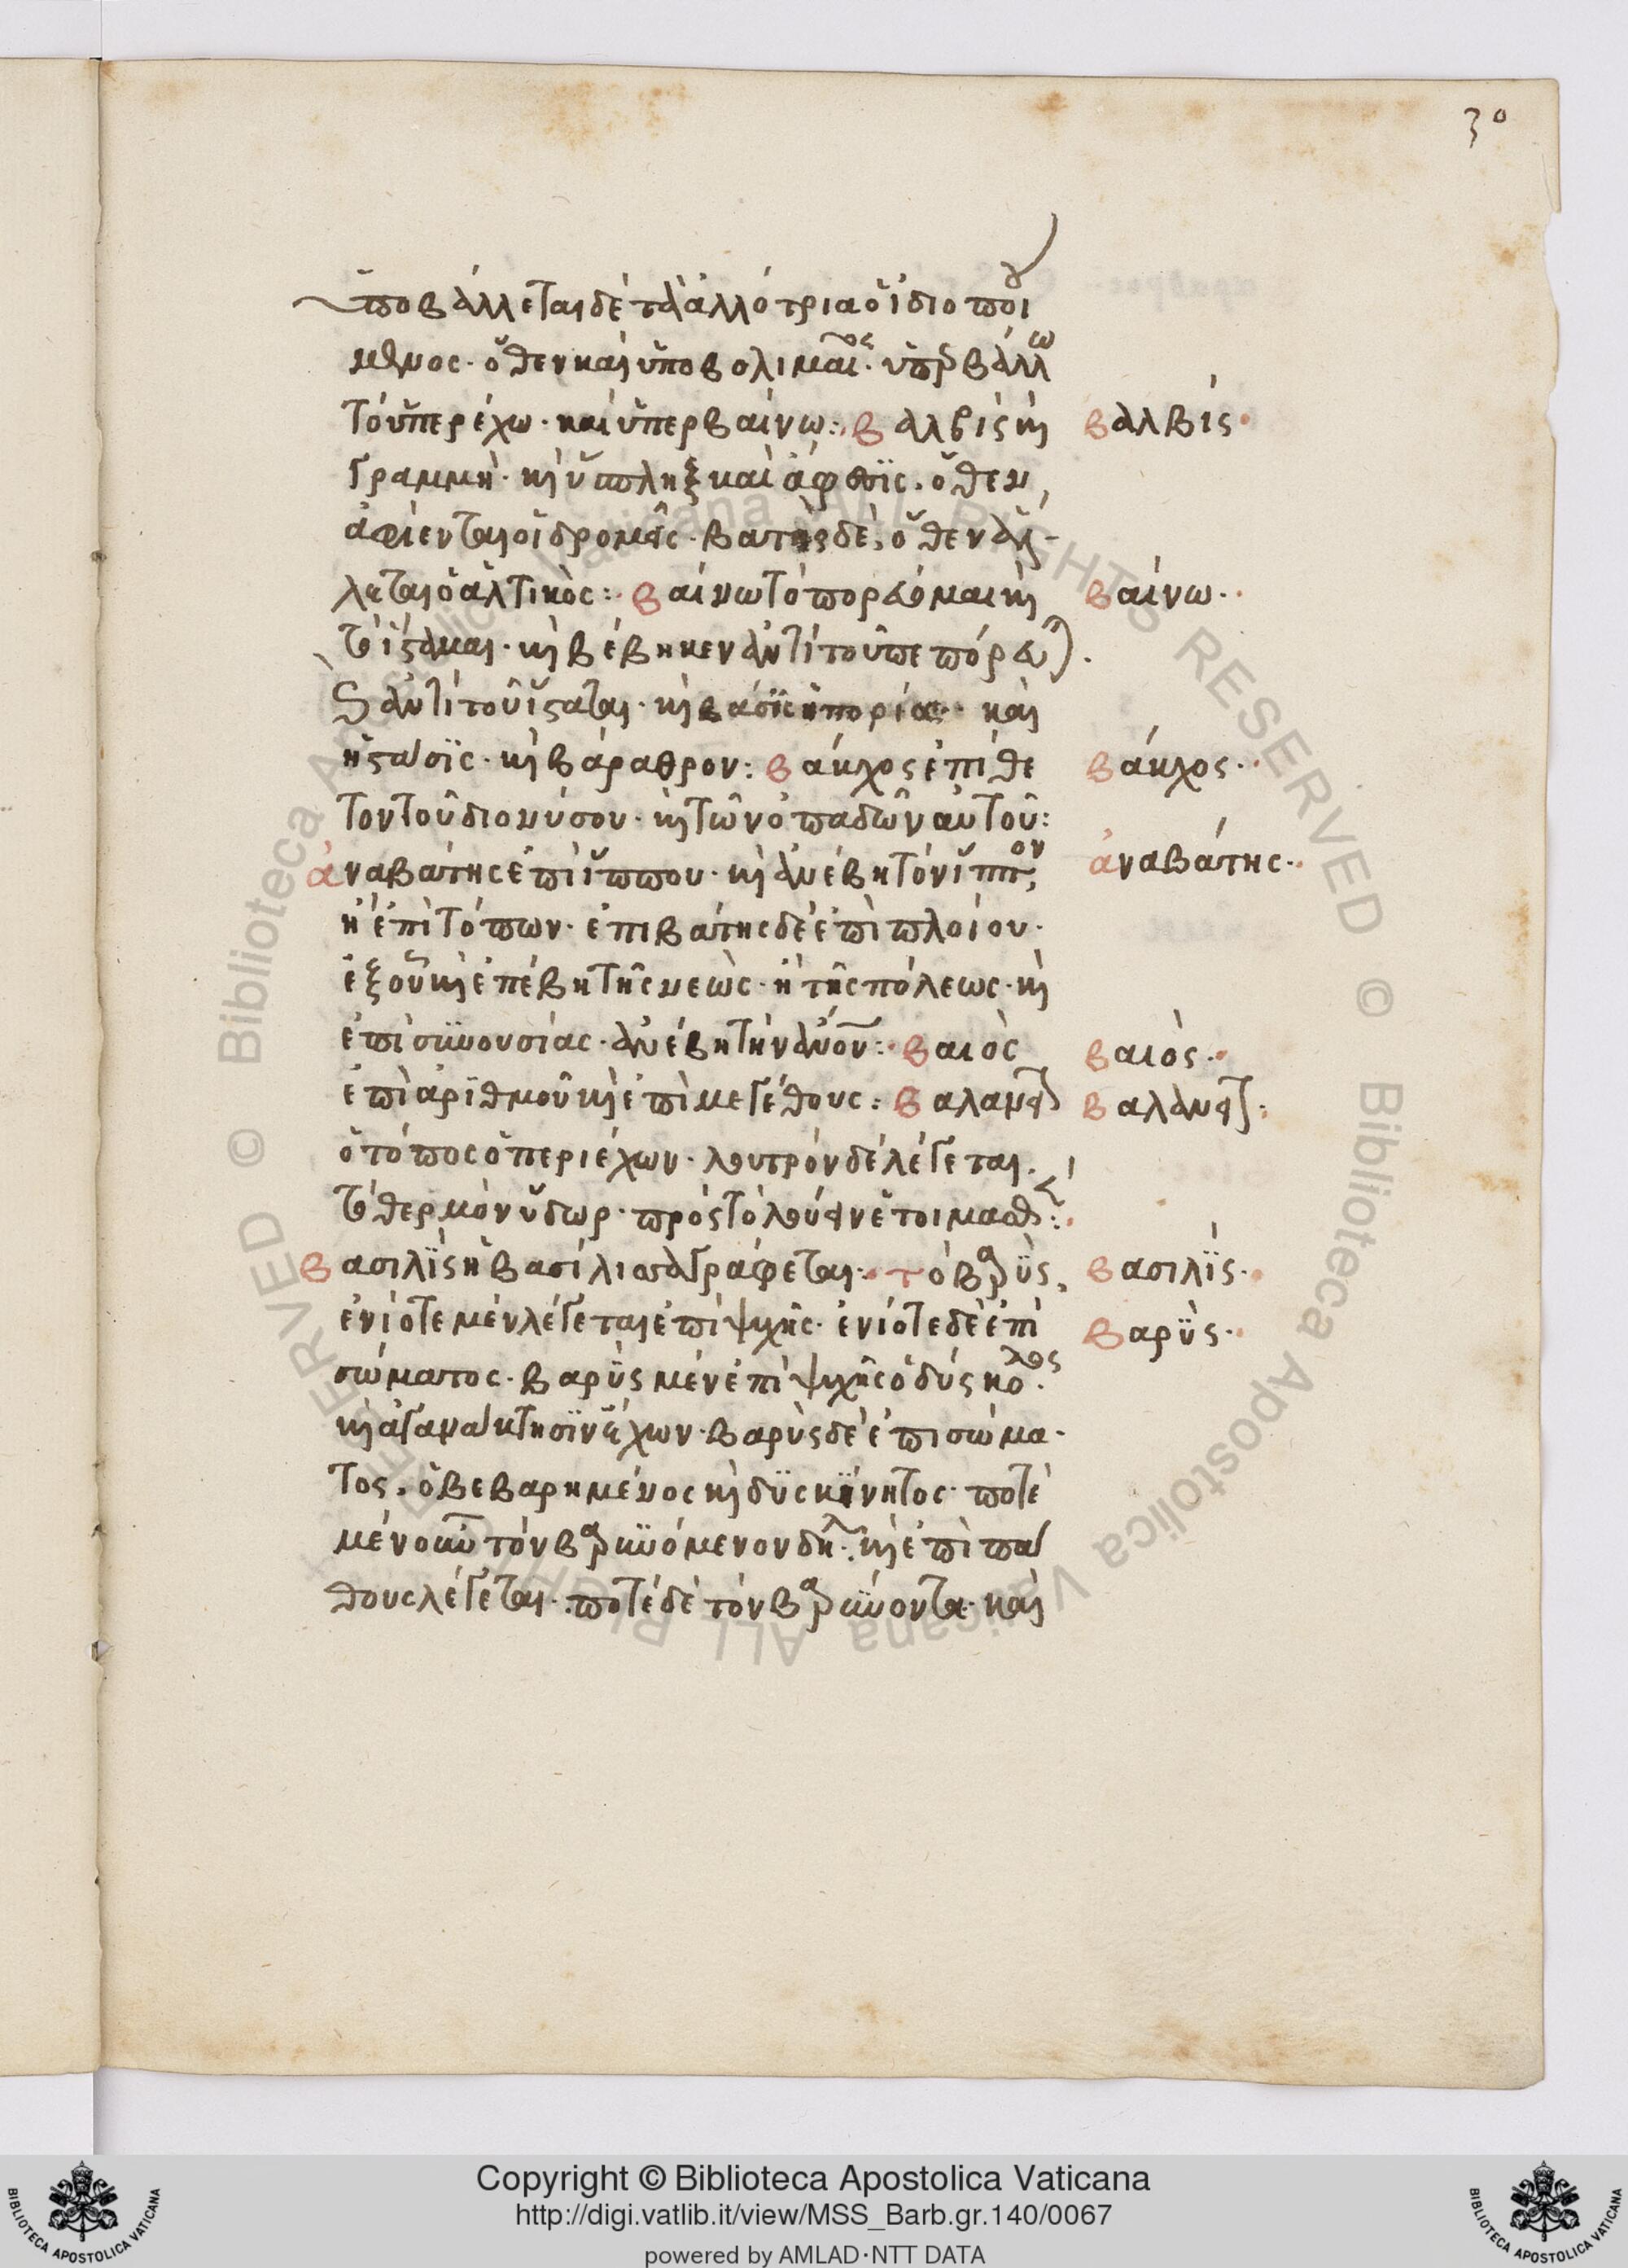 30
ὑποβάλλεται δὲ τὰ ἀλλότρια ὁ ἰδιοποιού
μενος· ὅθεν καὶ ὑποβολιμαῖος· ὑπερβάλλω
τὸ ὑπερέχω· καὶ ὑπερβαίνω: βαλβὶς ἡ βαλβίς·
γραμμή· καὶ ὕσπληξ καὶ ἄφεσις. ὅθεν
ἀφίενται οἱ δρομεῖς· βατὴρ δὲ, ὅθεν ἅλ-
λεται ὁ ἁλτικὸς: βαίνω τὸ πορεύομαι καὶ βαίνω·
τὸ ἵσταμαι· καὶ βέβηκεν ἀντὶ τοῦ πεπόρευται.
καὶ ἀντὶ τοῦ ἵσταται· καὶ βάσις ἡ πορεία· καὶ
ἡ στάσις· καὶ βάραθρον: βάκχος ἐπίθε βάκχος·
τον τοῦ διονύσου· καὶ τῶν ὀπαδῶν αὐτοῦ:
ἀναβάτης ἐπὶ ἵππου· καὶ ἀνέβη τὸν ἵππον, ἀναβάτης·
ἢ ἐπὶ τόπων· ἐπιβάτης δὲ ἐπὶ πλοίου·
ἐξ οὗ καὶ ἐπέβη τῆς νεὼς· ἢ τῆς πόλεως· καὶ
ἐπὶ συνουσίας· ἀνέβη τὴν ὄνον: βαιὸς βαιὸς·
ἐπὶ ἀριθμοῦ καὶ ἐπὶ μεγέθους: βαλανεῖον βαλανεῖον:
ὁ τόπος ὁ περιέχων· λουτρὸν δὲ λέγεται.
τὸ θερμὸν ὕδωρ· πρὸς τὸ λούειν ἑτοιμασθέν:
βασιλὶς ἢ βασίλισσα γράφεται: τὸ βαρὺς, βασιλὶς·
ἐνίοτε μὲν λέγεται ἐπὶ ψυχῆς· ἐνίοτε δὲ ἐπὶ βαρὺς·
σώματος· βαρὺς μὲν ἐπὶ ψυχῆς ὁ δύσκολος·
καὶ ἀγανάκτησιν ἔχων· βαρὺς δὲ ἐπὶ σώμα·
τος. ὁ βεβαρημένος καὶ δυσκίνητος· ποτὲ
μὲν οὖν τὸν βαρυνόμενον δηλοῖ· καὶ ἐπὶ πά
θους λέγεται· ποτὲ δὲ τὸν βαρύνοντα· καὶ
Copyright © Biblioteca Apostolica Vaticana
http://digi.vatlib.it/view/MSS_Barb.gr.140/0067
powered by AMLAD·NTT DATA